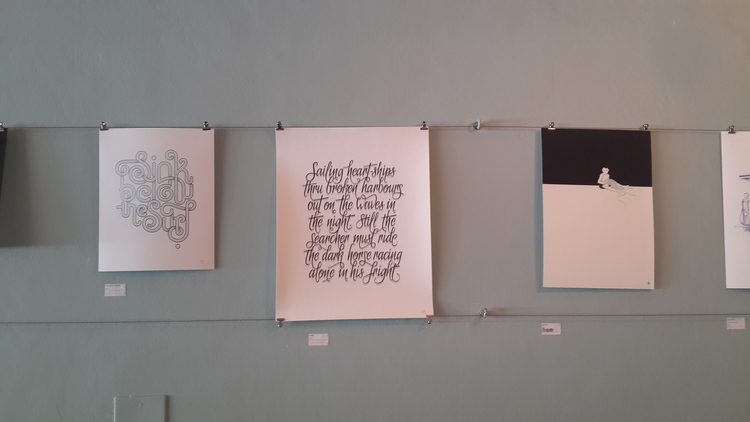 Sink
below
the surf
Sailing heart-ships
thru broken harbours
out on the waves in
the night. Still the
searcher must ride
the dark horse racing
alone in his fright